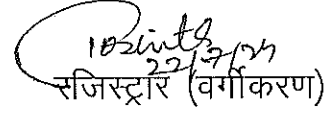 22/7/24
रजिस्ट्रार (वर्गीकरण)